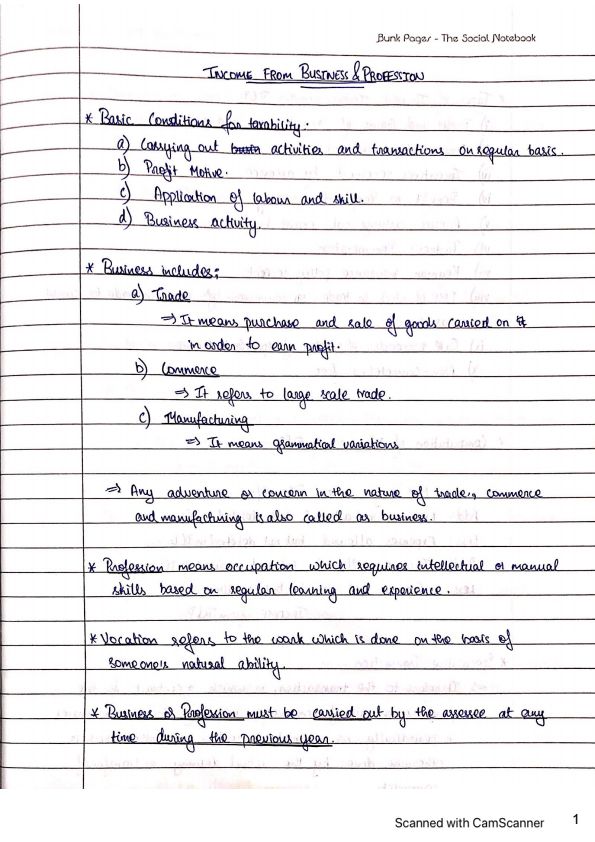 Bunk Pages - The Social Notebook
INCOME FROM BUSINESS & PROFESSION
* Basic Conditions for taxability:
a) Carrying out activities and transactions on regular basis.
b) Profit Motive.
c) Application of labour and skill.
d) Business activity.
* Business includes:
a) Trade
⇒ It means purchase and sale of goods carried on
in order to earn profit.
b) Commerce
⇒ It refers to large scale trade.
c) Manufacturing
⇒ It means grammatical variations
⇒ Any adventure or concern in the nature of trade, commerce
and manufacturing is also called as business.
* Profession means occupation which requires intellectual or manual
skills based on regular learning and experience.
* Vocation refers to the work which is done on the basis of
someone's natural ability.
* Business or Profession must be carried out by the assessee at any
time during the previous year.
Scanned with CamScanner 1